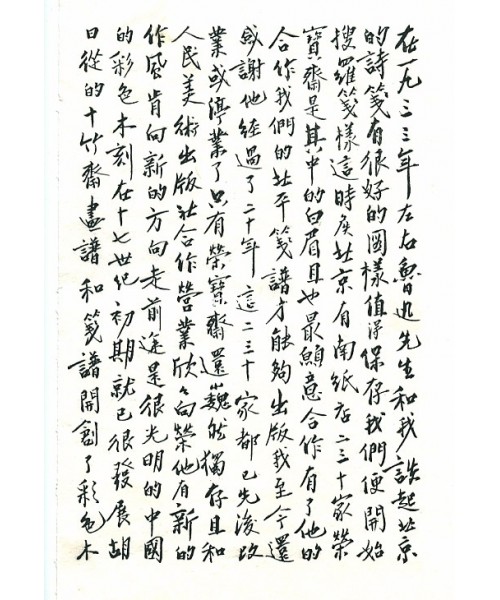 在一九三三年左右魯迅先生和我談起北京
的詩箋有很好的圖樣值得保存我們便開始
搜羅箋樣這時候北京有南紙店二三十家榮
寶齋是其中的白眉且也最願意合作有了他的
合作我們的北平箋譜才能夠出版我至今還
感謝他經過了二十年這二三十家都已先後改
業或停業了只有榮寶齋還巍然獨存且和
人民美術出版社合作營業欣々向榮他有新的
作風肯向新的方向走前途是很光明的中國
的彩色木刻在十七世紀初期就已很發展胡
曰從的十竹齋畫譜和箋譜開創了彩色木